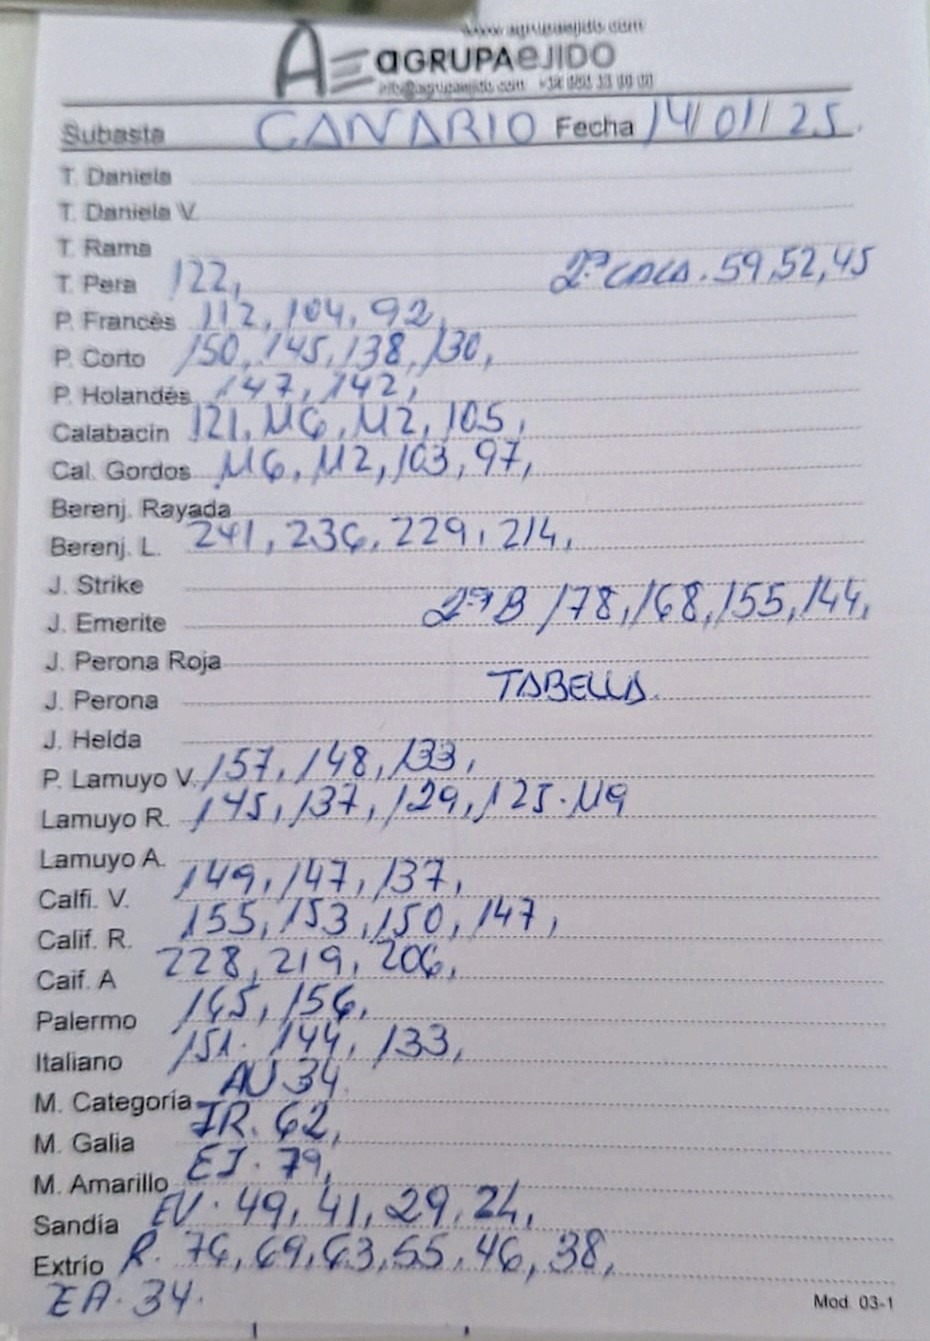 www.agrupaejido.com
AGRUPAEJIDO
Subasta CANARIO Fecha 14/01/25.
T. Daniela
T. Daniela V.
T. Rama
T. Pera 122, 2ª CALA. 59,52,45
P. Francés 112, 104, 92,
P. Corto 150, 145, 138, 130,
P. Holandés 147, 142,
Calabacin 121, 116, 112, 105,
Cal. Gordos 116, 112, 103, 97,
Berenj. Rayada
Berenj. L. 241, 236, 229, 214,
J. Strike
J. Emerite 2ª B 178, 168, 155, 144,
J. Perona Roja
J. Perona TABELLA.
J. Helda
P. Lamuyo V. 157, 148, 133,
Lamuyo R. 145, 137, 129, 125. 119
Lamuyo A.
Calfi. V. 149, 147, 137,
Calif. R. 155, 153, 150, 147,
Caif. A 228, 219, 206,
Palermo 165, 156,
Italiano 151. 144, 133,
M. Categoría AU 34.
M. Galia IR. 62,
M. Amarillo EI. 79,
Sandía EV. 49, 41, 29, 24,
Extrio R. 76, 69, 63, 55, 46, 38,
EA. 34.
Mod. 03-1